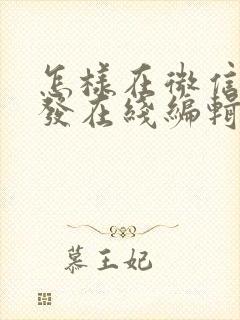 怎樣在微信
發在綫編輯
慕王妃